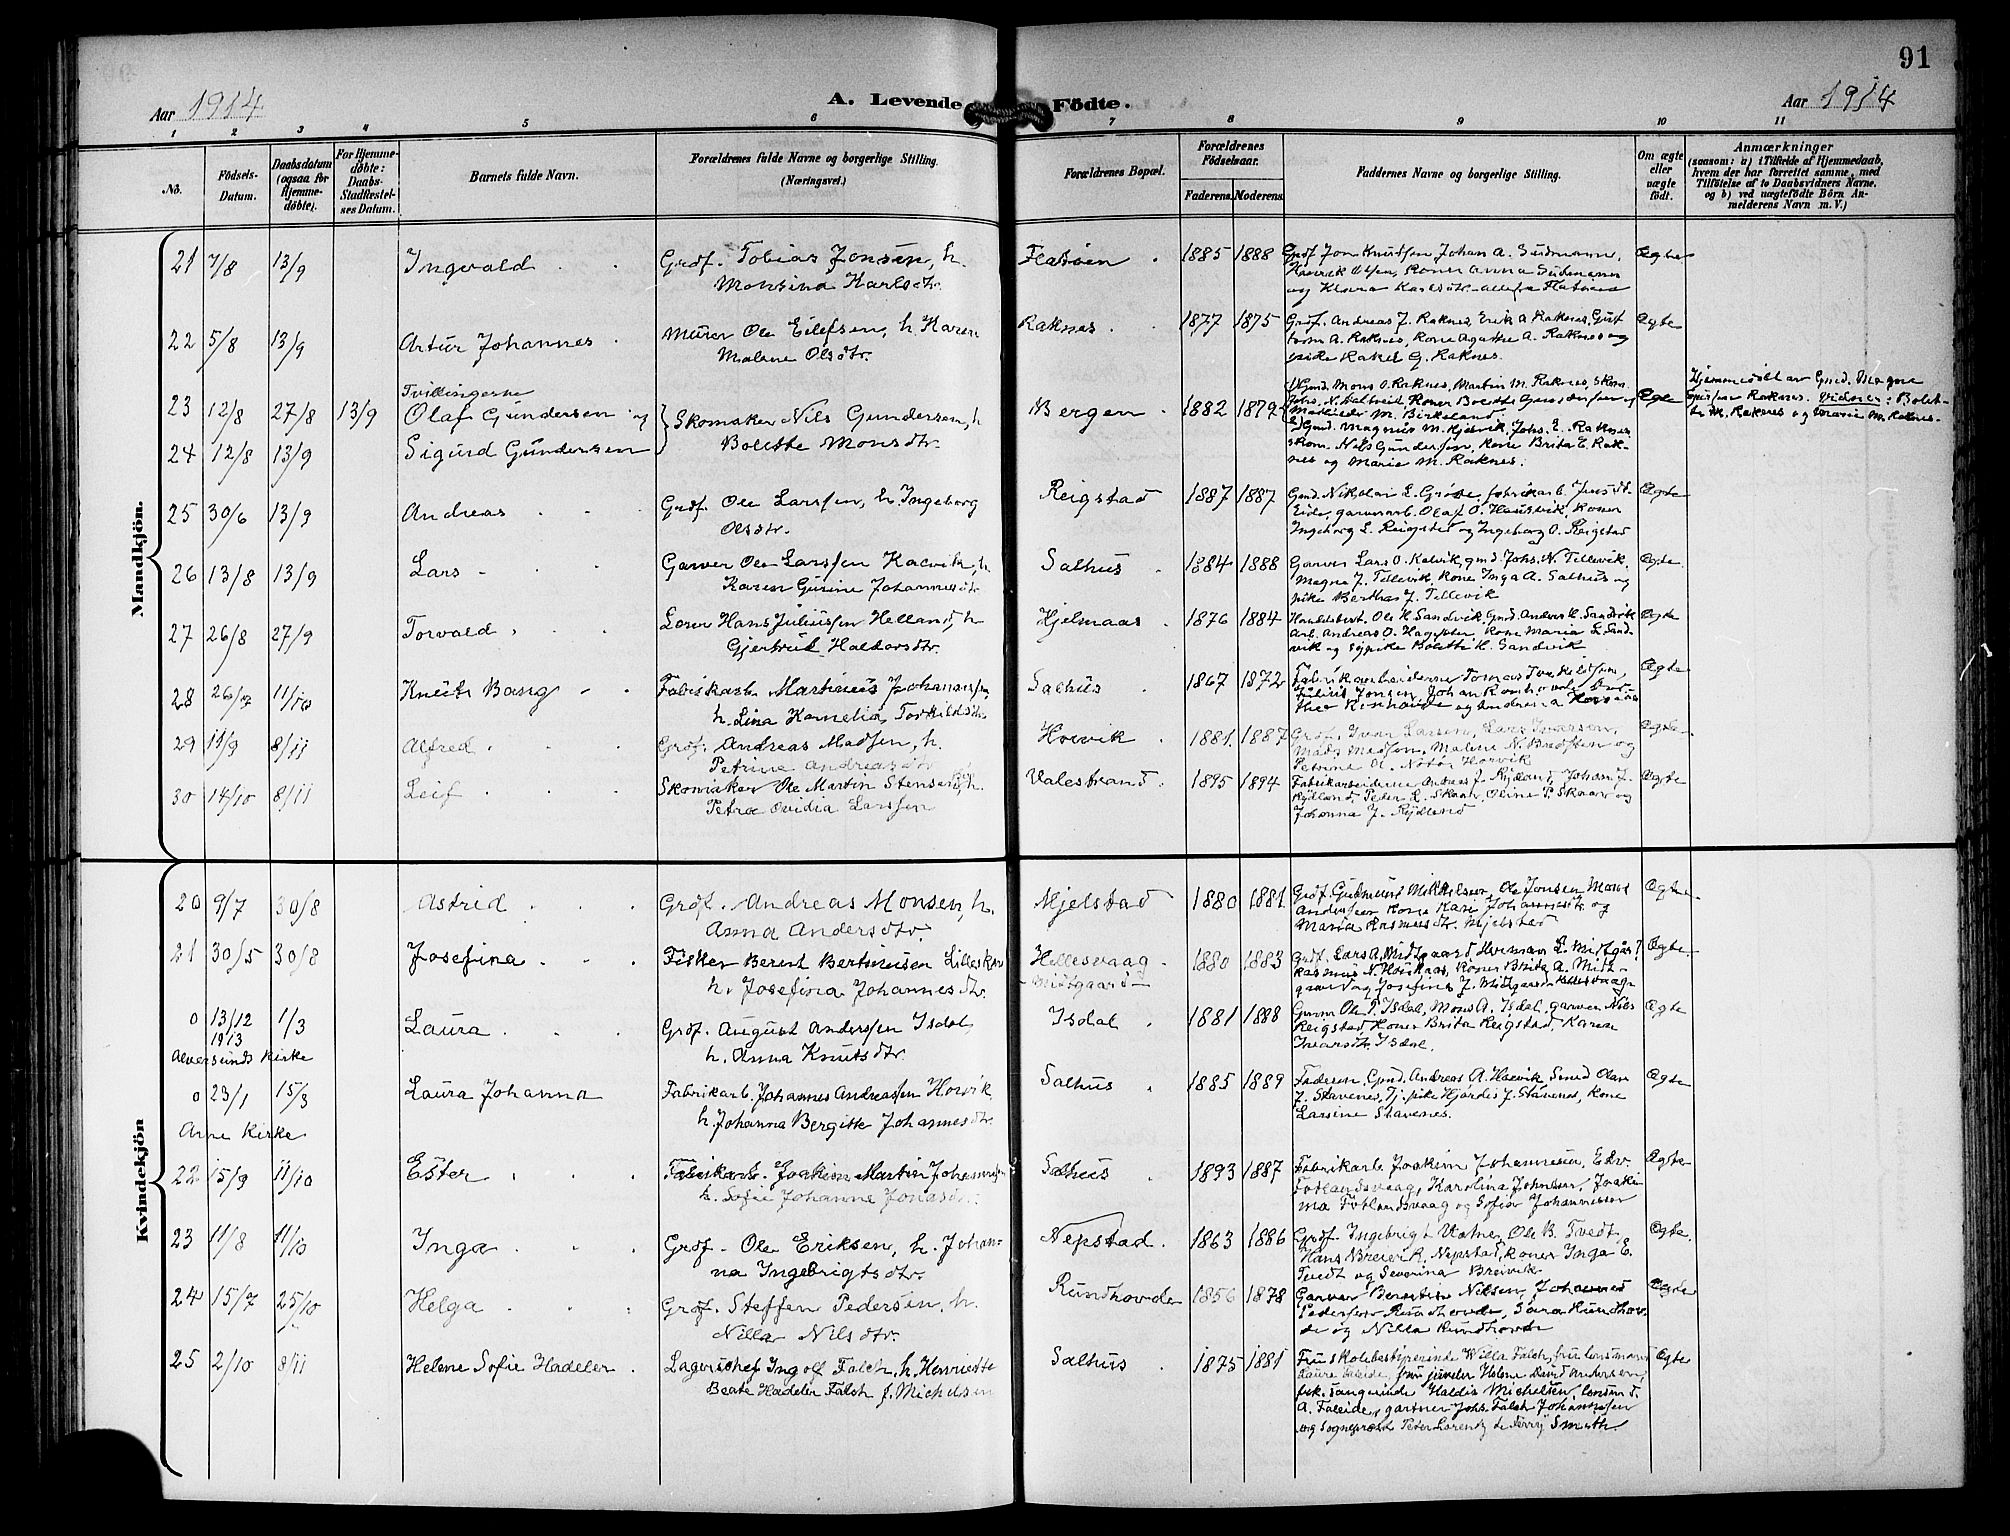 91
Aar 1914
A. Levende Födte.
Aar 1914
1 2 3 4 5 6 7 8 9 10 11
No.
Födsels-Datum.
Daabsdatum (ogsaa for Hjemme-döbte).
For Hjemme-döbte: Daabs-Stadfæstel-ses Datum.
Barnets fulde Navn.
Forældrenes fulde Navne og borgerlige Stilling. (Næringsvei.)
Forældrenes Bopæl.
Forældrenes Födselsaar.
Faderens. Moderens.
Faddernes Navne og borgerlige Stilling.
Om ægte eller uægte födt.
Anmærkninger
(saasom: a) i Tilfælde af Hjemmedaab,
hvem der har forrettet samme, med
Tilföielse af to Daabsvidners Navne.
og b) ved uægtefödte Börn An-
melderens Navn m. V.)
Mandkjön.
21 7/8 13/9 Ingvald Grdf. Tobias Jonsen, h. Flatöen 1885 1888 Grdf Jon Knudsen Johan A. Sudmann, Ægte
Monsina Karlsdtr. Koner Anna Sudmann
og Klara Karlsdtr. alle fra Flatöen
22 5/8 13/9 Artur Johannes Murer Ole Eilefsen, h Karen Raknes 1877 1875 Grdf. Andreas J. Raknes, Erik A Raknes, Gust Ægte
Malene Olsdtr. A. Raknes, Kone Agathe A. Raknes og
pike Rakel G. Raknes.
Tvillingerne
23 12/8 27/8 13/9 Olaf Gundersen og Skomaker Nils Gundersen, h Bergen 1882 1879 1) Gmd. Mons O. Raknes, Martin M. Raknes, Skom. Ægte Hjemmedöbt av Gmd. Magne
Raknes. Vidner: Bolet-
te M. Raknes og Marie M. Raknes.
M. Birkeland.
24 12/8 13/9 Sigurd Gundersen Bolette Monsdtr. 2) Gmd. Magnus M. Hjelvik, Johs. E. Raknes
Skom. Nils Gundersen, Kone Brita E. Rak-
nes og Marie M. Raknes.
25 30/6 13/9 Andreas Grdf. Ole Larssen, h. Ingeborg Reigstad 1887 1887 Gmd. Nikolai L. fabrikarb. Ægte
Olsdtr. Eide, garverarb. Olaf O. Hausvik, Koner
Ingeborg L. Reigstad og Ingeborg O. Reigstad
26 13/8 13/9 Lars Garver Ole Larssen Kalvik, h. Salhus 1884 1888 Garver Lars O. Kalvik, gmd. Johs. N. Tellevik, Ægte
Karen Gurine Johannesdtr. Magne J. Tellevik, Kone Inga A. Salhus og
pike Berthas J. Tellevik
27 26/8 27/9 Torvald Hans Juliussen Helland, h Hjelmaas 1876 1884 Handelsbest. Ole H. Sandvik, Gmd. Anders H. Sandvik Ægte
Gjertrud Haldorsdtr. Arb. Andreas O. Kone Maria L. Sand-
vik og sypike Bolette H. Sandvik
28 26/7 11/10 Knut Bang Fabrikarb. Martinus Johannessen, Salhus 1867 1872 Fabrikarbeiderne Tomas Torkildsen, Ægte
h. Lina Kornelia Torkildsdtr. Julius Jonsen, Johan
og Andrea
29 11/9 8/11 Alfred Grdf. Andreas Madsen, h. Horvik 1881. 1887 Grdf. Ivar Larsen, Lars Iversen, Ægte
Petrine Andreasdtr. Mads Madsen, Malene N. og
Petrine Horvik
30 14/10 8/11 Leif Skomaker Ole Martin Stensen, h. Valestrand. 1895 1894 Fabrikarbeiderne Andreas J. Rydland, Johan J. Ægte
Petra Ovidia Larssen Rydland, Peder L. Skaar, Oline P. Skaar og
Johanna J. Rydland
Kvindekjön
20 9/7 30/8 Astrid Grdf. Andreas Monsen, h. Mjelstad 1880 1881. Grdf. Gudmund Mikkelsen, Ole Jonsen Mons Ægte
Anna Andersdtr. Anderssen Kone Kari Johannesdtr. og
Maria Rasmusdtr. Mjelstad
21 30/5 30/8 Josefina Fisker Berent Bertinussen Lilleskar Hellesvaag 1880 1883 Grdf. Lars A. Midtgaard, Herman L. Midtgård Ægte
h. Josefina Johannesdtr. - Midtgaard - Rasmus N. Koner Brita A. Midt-
gaard og Josefine J. Midtgaard
0 13/12 1913 1/3 Laura Grdf. August Anderssen Isdal, Isdal 1881 1888 Ole P. Isdal, Mons A. Isdal, garver Nils Ægte
h. Anna Knutsdtr. Reigstad, Koner Brita Reigstad, Karen
Ivarsdtr. Isdal.
Alversunds Kirke
0 23/1 15/3 Laura Johanna Fabrikarb. Johannes Andreassen Horvik Salhus 1885 1889 Faderen, Gmd. Andreas A. Horvik, Smed Olav Ægte
h. Johanna Bergitte Johannesdtr. J. Stavenes, Tj. pike Hjördis J. Stavenes, Kone
Larsine Stavenes.
Arne Kirke
22 15/9 11/10 Ester Fabrikarb. Joakim Martin Johannessen Salhus 1893 1887 Fabrikarb. Joakim Johannesen, Edv. Ægte
h. Sofie Johanne Jonasdtr. Fotlandsvaag, Karolina Johnsen, Joaki
ma Fotlandsvaag og Sofie Johannessen
23 11/8 11/10 Inga Grdf. Ole Eriksen, h. Johan- Nepstad. 1863 1886 Grdf. Ingebrigt Vatne, Ole B. Tvedt, Ægte.
na Ingebrigtsdtr. Hans Breivik, Nepstad, Koner Inga E.
Tvedt og Severina Breivik
24 15/7 25/10 Helga Grdf. Steffen Pedersen, h. Rundhovde 1856 1878 Garver Berntin Nilsen, Johannes Ægte
Nilla Nilsdtr. Pedersen Rundhovde, Sara Rundhov-
de og Nilla Rundhovde
25 2/10 8/11 Helene Sofie Hadeler Lagerschef Ingolf Falch, h. Henriette Salhus 1875 1881 Fru skolebestyrerinde Willa Falch, fru lensmann Ægte
Beate Hadeler Falch f. Michelsen Laura Faleide, fru juveler Helene David Andersen,
frk. sangerinde Haldis Michelsen, lensmd.
A. Faleide, gartner Johs. Falch Johannessen
og Sogneprest Peter Lorentz de Ferry Smith.